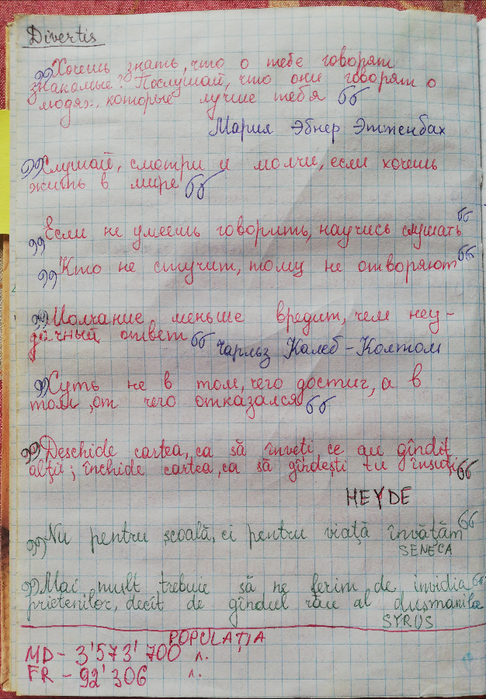 Divertis
„Хочешь знать, что о тебе говорят
знакомые? Послушай, что они говорят о
людях, которые лучше тебя“
Мария Эбнер Эшенбах
„Слушай, смотри и молчи, если хочешь
жить в мире“
„Если не умеешь говорить, научись слушать“
„Кто не стучит, тому не отворяют“
„Молчание меньше вредит, чем неу-
дачный ответ“
Чарльз Калеб-Колтом
„Суть не в том, чего достиг, а в
том, от чего отказался“
„Deschide cartea, ca să înveți ce au gîndit
alții; închide cartea, ca să gîndești tu însuți“
HEYDE
„Nu pentru școală, ci pentru viață învățăm“
SENECA
„Mai mult trebuie să ne ferim de invidia
prietenilor, decît de gîndul rău al dușmanilor“
SYRUS
POPULAȚIA
MD - 3'573'700 л.
FR - 92'306 л.